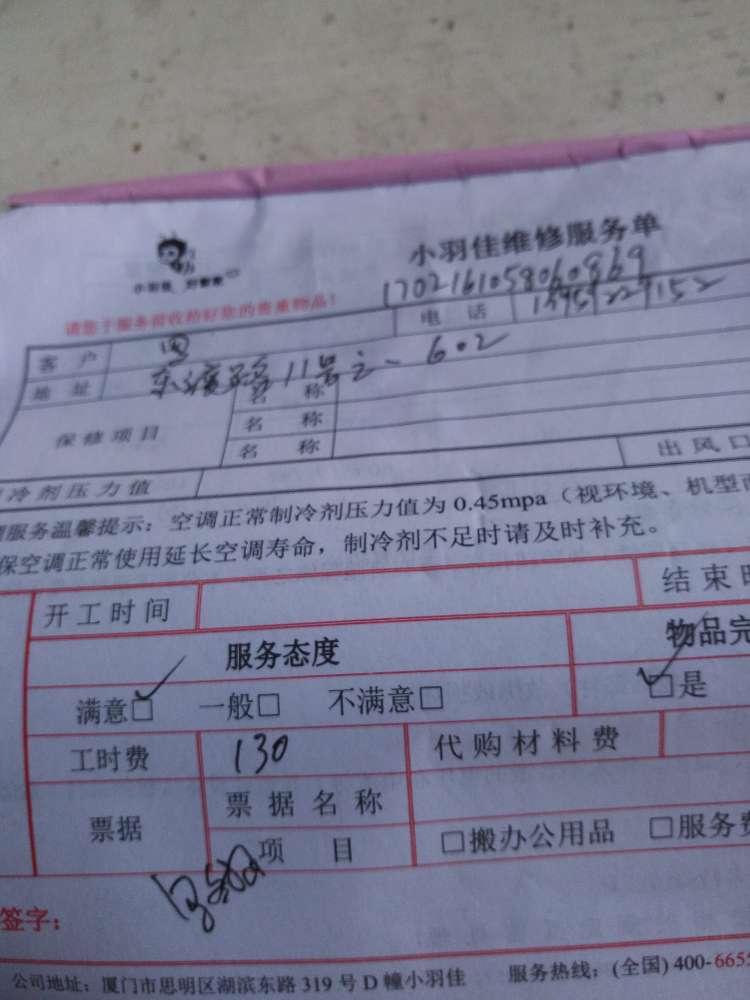 小羽佳维修服务单
小羽佳
1702161058060869
请您于服务前收拾好您的贵重物品！
客户 周 电话
地址 11号之一 602
保修项目 名称
名称
名称
冷剂压力值 出风口
服务温馨提示：空调正常制冷剂压力值为 0.45mpa（视环境、机型
保空调正常使用延长空调寿命，制冷剂不足时请及时补充。
开工时间 结束
服务态度 物品完
满意☑ 一般□ 不满意□ ☑是
工时费 130 代购材料费
票据 票据名称
项目 □搬办公用品 □服务费
签字：
公司地址：厦门市思明区湖滨东路 319 号 D 幢小羽佳 服务热线：(全国) 400-6655